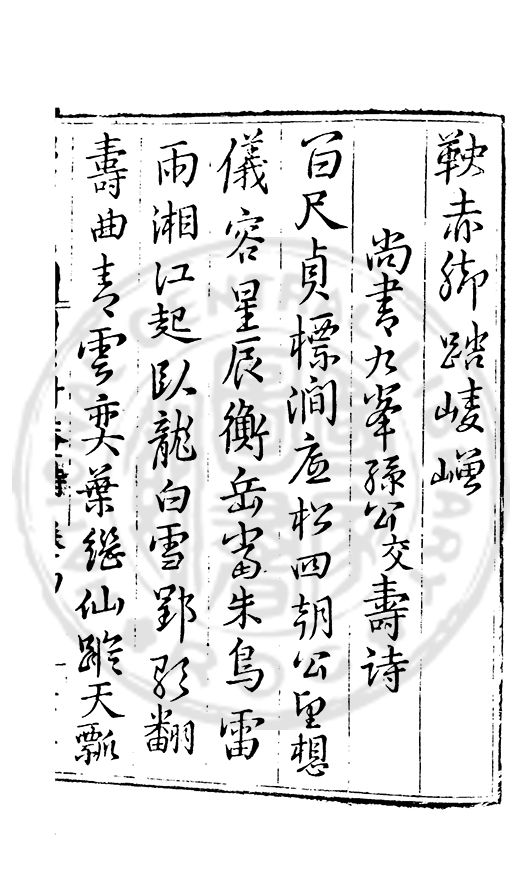 鞅赤脚踏崚嶒
尚書九峯孫公交壽詩
百尺貞標澗底松四朝公望想
儀容星辰衡岳當朱鳥雷
雨湘江起臥龍白雪郢歌翻
壽曲青雲奕葉繼仙蹤天瓢